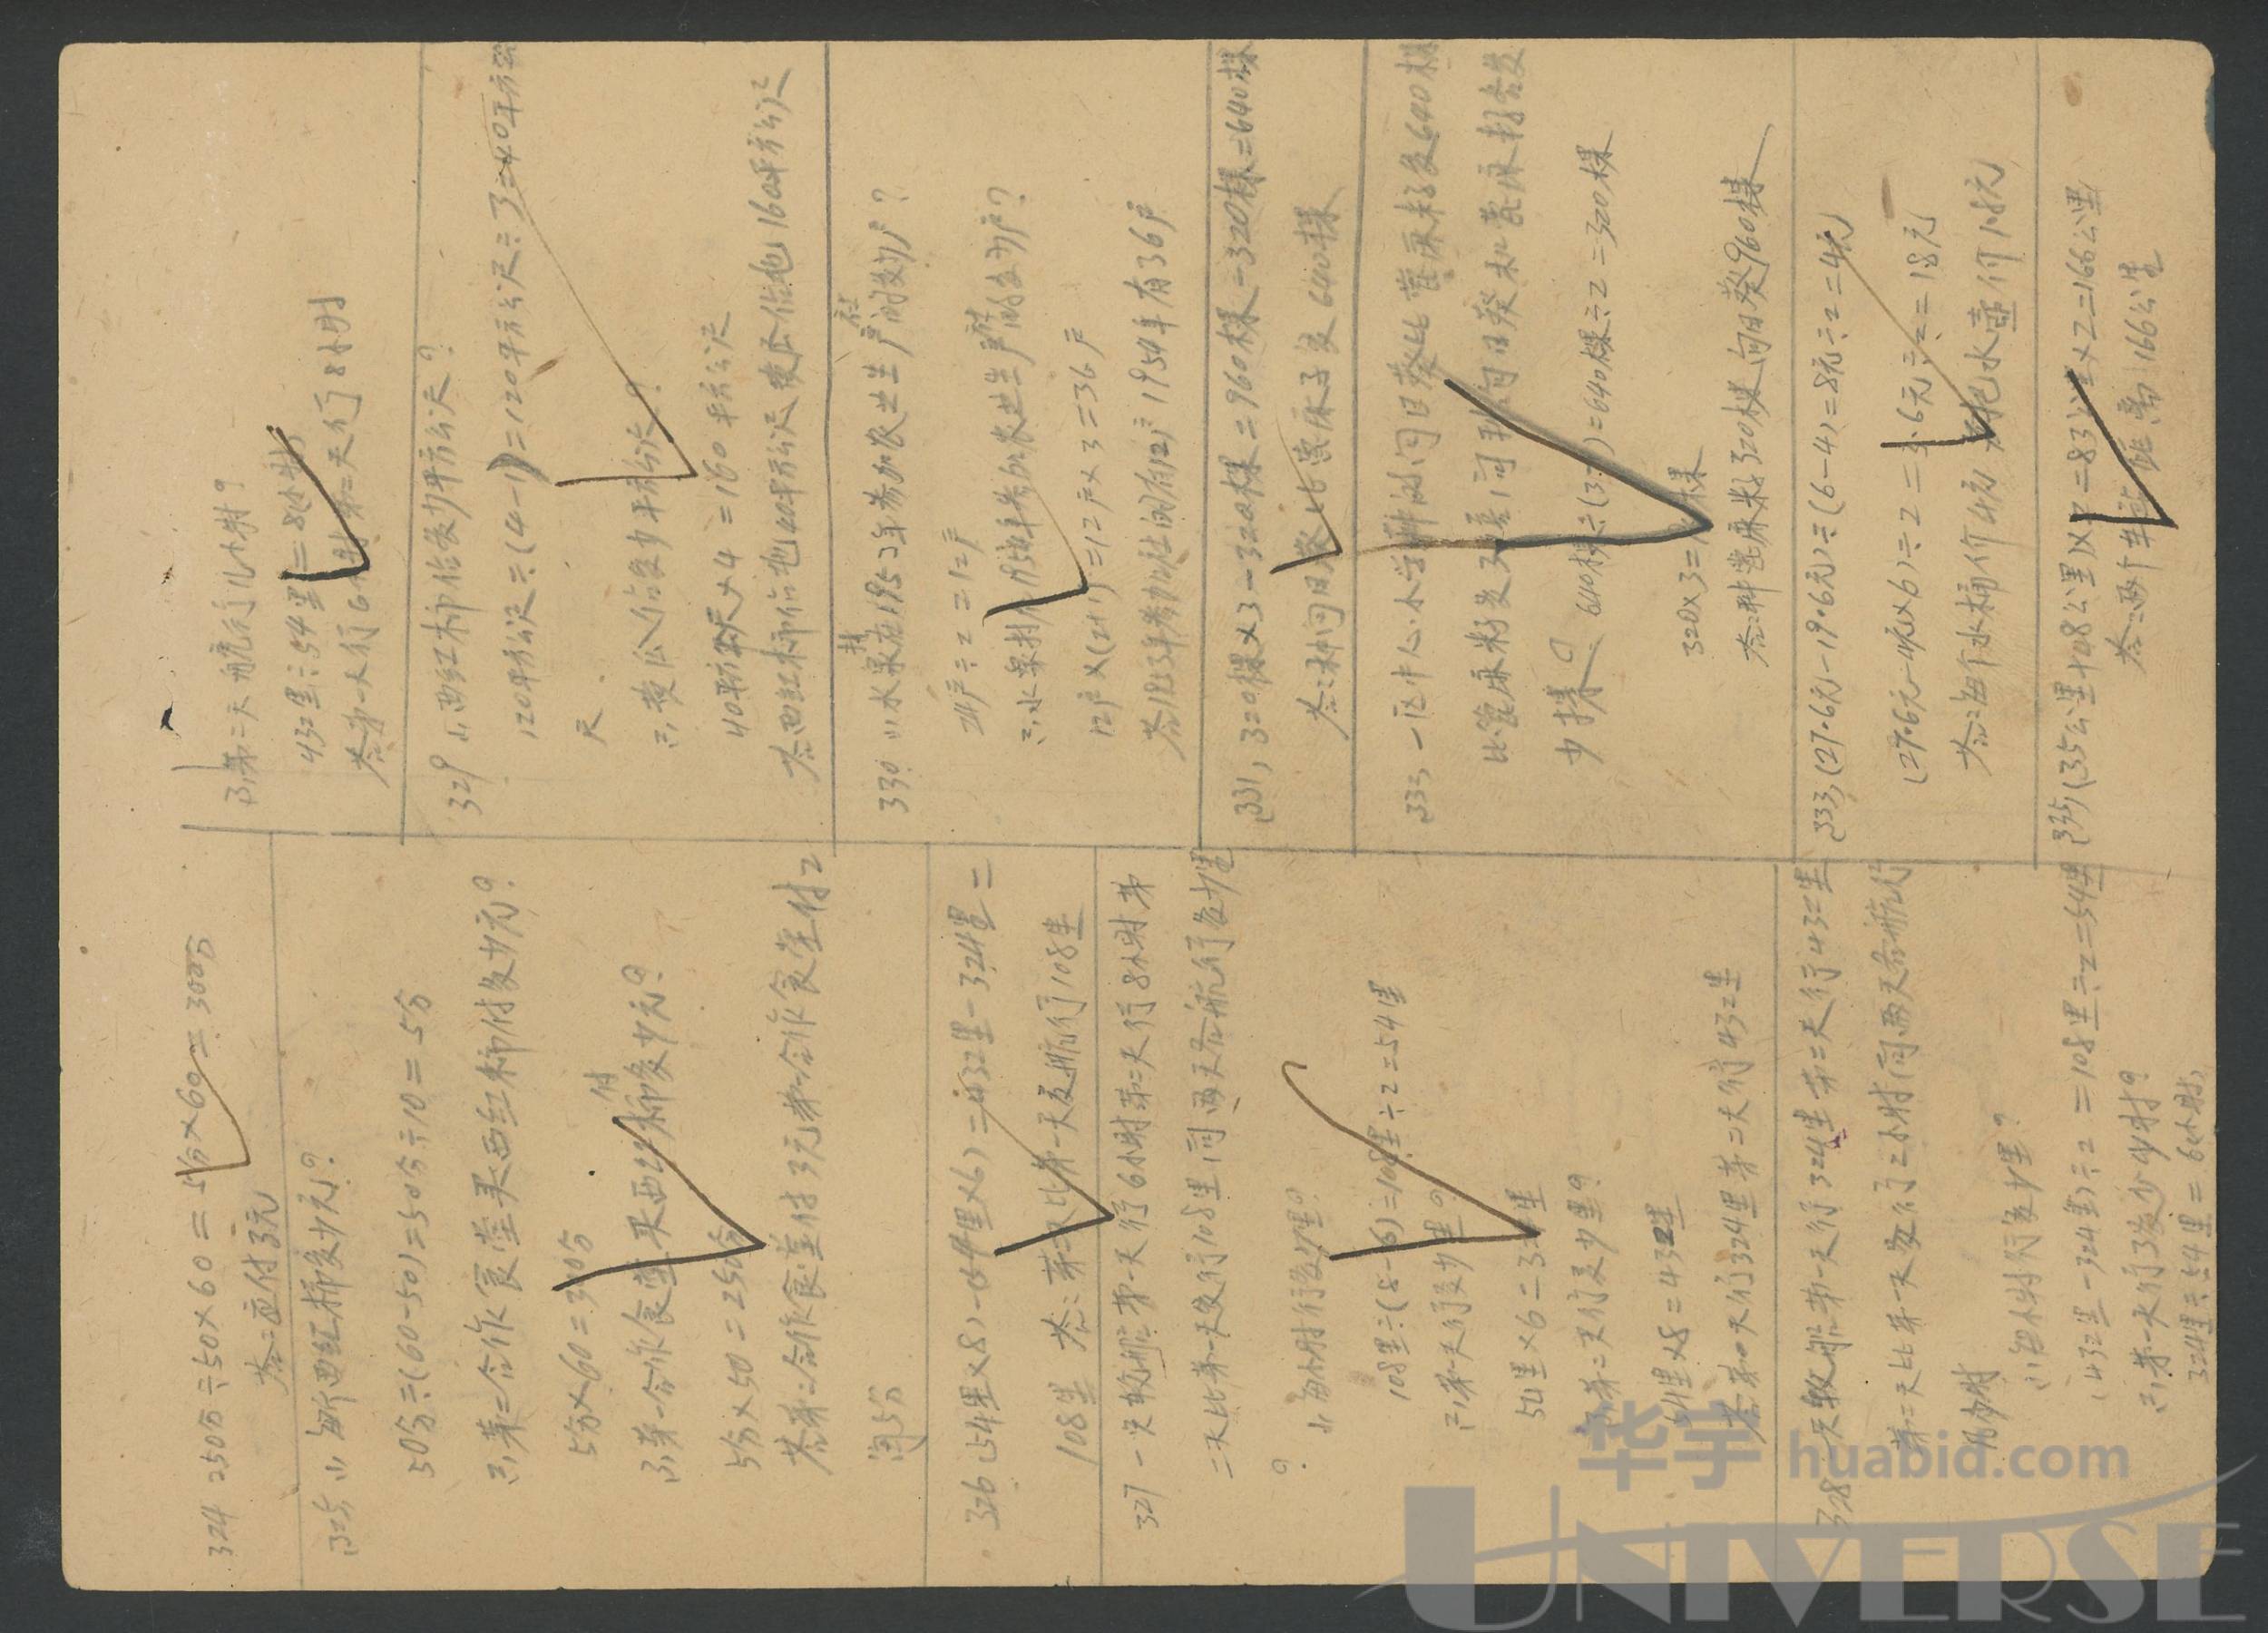 324 250分÷50×60=5分×60=300分
答:应付3元
325, (1) 每斤西红柿多少元?
50分÷(60-50)=50分÷10=5分
(2) 第二合作食堂买西红柿付多少元?
5分×60=300分
付
(3) 第一合作食堂买西红柿多少元?
5分×50=250分
答第二合作食堂付3元第一合作食堂付2
元5角
326 (54里×8)-(54里×6)=432里-324里=
108里 答:第二天比第一天多航行108里
327 一只轮船第一天行6小时第二天行8小时第
二天比第一天多行108里问两天各航行多少里
?
(1) 每小时行多少里?
108里÷(8-6)=108里÷2=54里
(2) 第一天行多少里?
54里×6=324里
(3) 第二天行多少里?
54里×8=432里
答第一天行324里第二天行432里
328 一只轮船第一天行324里第二天行432里
第二天比第一天多行2小时问两天各航行
几小时
(1) 每小时行多少里?
(432里-324里)÷2=108里÷2=54里
(2) 第一天行了多少小时?
324里÷54里=6(小时)
(3) 第二天航行几小时?
432里÷54里=8(小时)
答第一天行6小时第二天行8小时
329 (1) 西红柿占多少平方公尺?
120平方公尺÷(4-1)=120平方公尺÷3=40平方公
尺
(2) 黄瓜占多少平方公尺?
40平方公尺×4=160平方公尺
答西红柿占地40平方公尺黄瓜占地160平方公尺
330 (1) 水泉村1952年参加农业生产社的多少户?
24户÷2=12户
(2) 水泉村1954年参加农业生产社的多少户?
12户×(2+1)=12户×3=36户
答1952年参加社的有12户1954年有36户
331, 320棵×3-320棵=960棵-320棵=640棵
答:种向日葵比蓖麻子多640棵
332, 一区中心小学种的向日葵比蓖麻籽多640棵
比蓖麻籽多2倍问种向日葵和蓖麻籽各多
少棵? 640棵÷(3-1)=640棵÷2=320棵
320×3=960棵
答:种蓖麻籽320棵向日葵960棵
333, (27.6元-19.6元)÷(6-4)=8元÷2=4元
(27.6元-4元×6)÷2=3.6元÷2=1.8元
答:每个水桶价4元每把水壶价1.8元
335 (35公里+48公里)×2=83公里×2=166公里
答:两个车站距离166公里
华宇 huabid.com
UNIVERSE